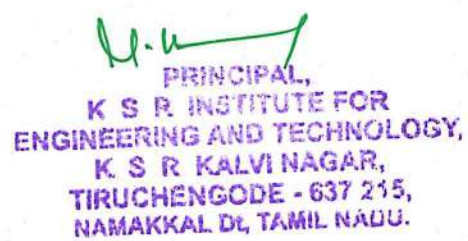 PRINCIPAL,
K S R INSTITUTE FOR
ENGINEERING AND TECHNOLOGY,
K. S. R. KALVI NAGAR,
TIRUCHENGODE - 637 215,
NAMAKKAL Dt, TAMIL NADU.